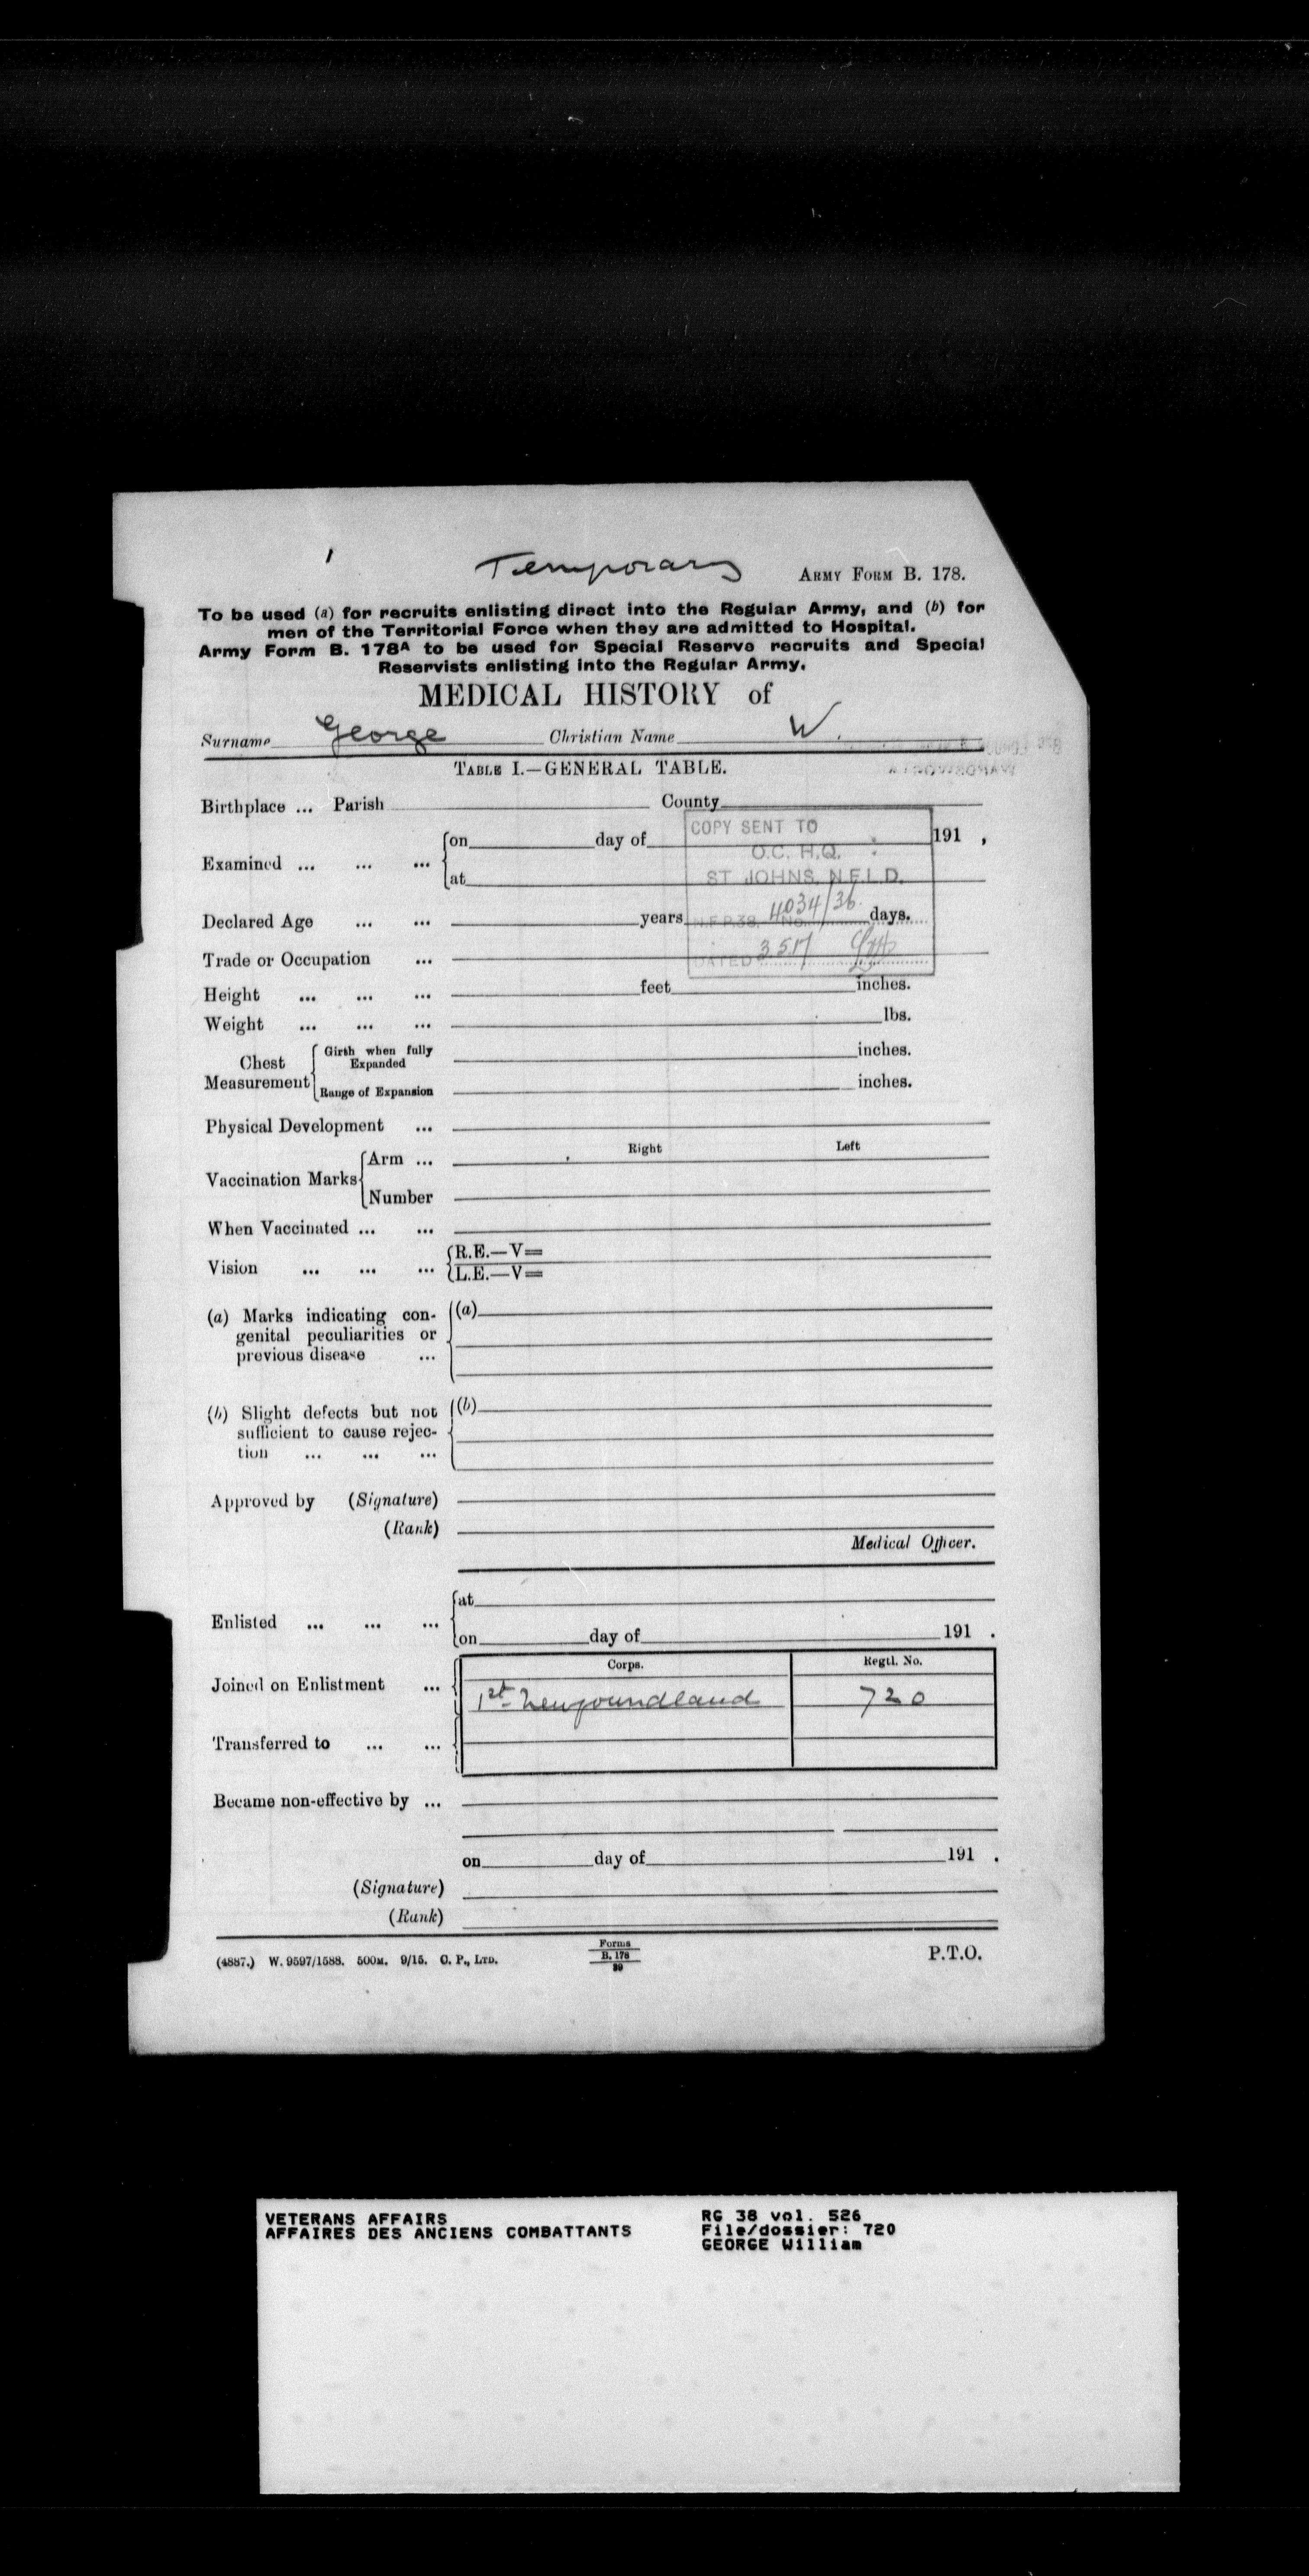 Temporary
ARMY FORM B. 178.
To be used (a) for recruits enlisting direct into the Regular Army, and (b) for
men of the Territorial Force when they are admitted to Hospital.
Army Form B. 178A to be used for Special Reserve recruits and Special
Reservists enlisting into the Regular Army.
MEDICAL HISTORY of
Surname George Christian Name W.
TABLE I.—GENERAL TABLE.
Birthplace ... Parish County
COPY SENT TO
O.C. H.Q.
ST JOHNS, N.F.L.D.
N.F.P.38. No. 4034/36
DATED 3517
Examined ... ... ...
on day of 191 ,
at
Declared Age ... ... years days.
Trade or Occupation ...
Height ... ... ... feet inches.
Weight ... ... ... lbs.
Chest Measurement
Girth when fully Expanded inches.
Range of Expansion inches.
Physical Development ...
Right Left
Vaccination Marks
Arm ...
Number
When Vaccinated ... ...
Vision ... ... ...
R.E.—V=
L.E.—V=
(a) Marks indicating con- (a)
genital peculiarities or
previous disease ...
(b) Slight defects but not (b)
sufficient to cause rejec-
tion ... ... ...
Approved by (Signature)
(Rank)
Medical Officer.
Enlisted ... ... ...
at
on day of 191 .
Corps. Regtl. No.
Joined on Enlistment ... 1st Newfoundland 720
Transferred to ... ...
Became non-effective by ...
on day of 191 .
(Signature)
(Rank)
(4887.) W. 9597/1588. 500M. 9/15. C. P., LTD.
Forms
B. 178
39
P.T.O.
VETERANS AFFAIRS RG 38 vol. 526
AFFAIRES DES ANCIENS COMBATTANTS File/dossier: 720
GEORGE William